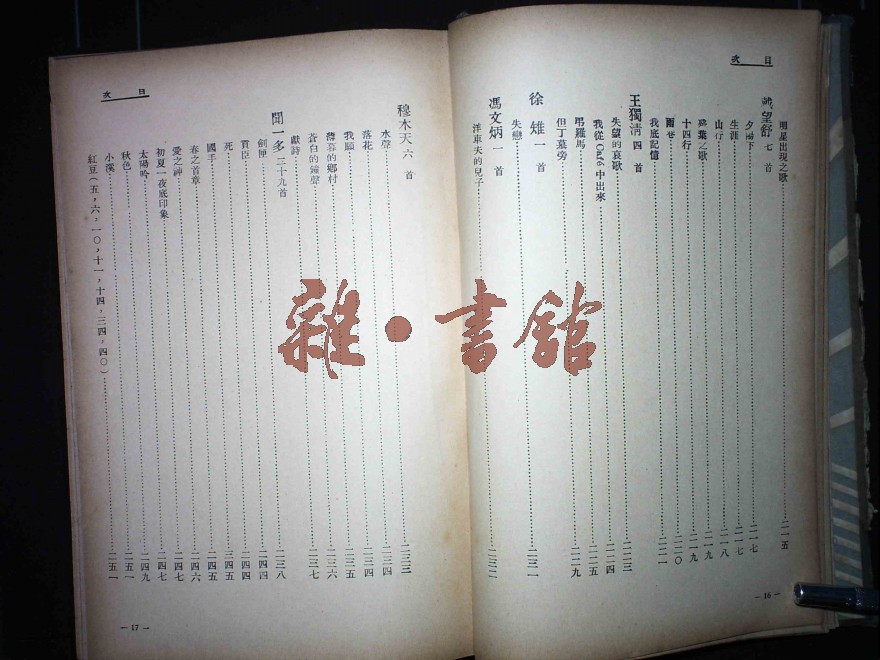 目次
明星出現之歌 二一五
戴望舒 七首
夕雨下 二一七
生涯 二一七
山行 二一八
殘葉之歌 二一九
十四行 二一九
雨巷 二二〇
我底記憶 二二一
王獨清 四首
失望的哀歌 二二三
我從Café中出來 二二四
弔羅馬 二二五
但丁墓旁 二二九
徐雉 一首
失戀 二三一
馮文炳 一首
洋車夫的兒子 二三二
— 16 —
目次
穆木天 六首
水聲 二三三
落花 二三四
我願 二三四
薄暮的鄉村 二三五
蒼白的鐘聲 二三六
獻詩 二三七
聞一多 二十九首
劍匣 二三八
貢臣 二四四
死 二四四
國手 二四五
春之首章 二四五
愛之神 二四六
初夏一夜底印象 二四七
太陽吟 二四七
秋色 二四九
小溪 二五一
紅豆(五,六,一〇,十一,十四,二四,四〇) 二五一
— 17 —
雜·書館